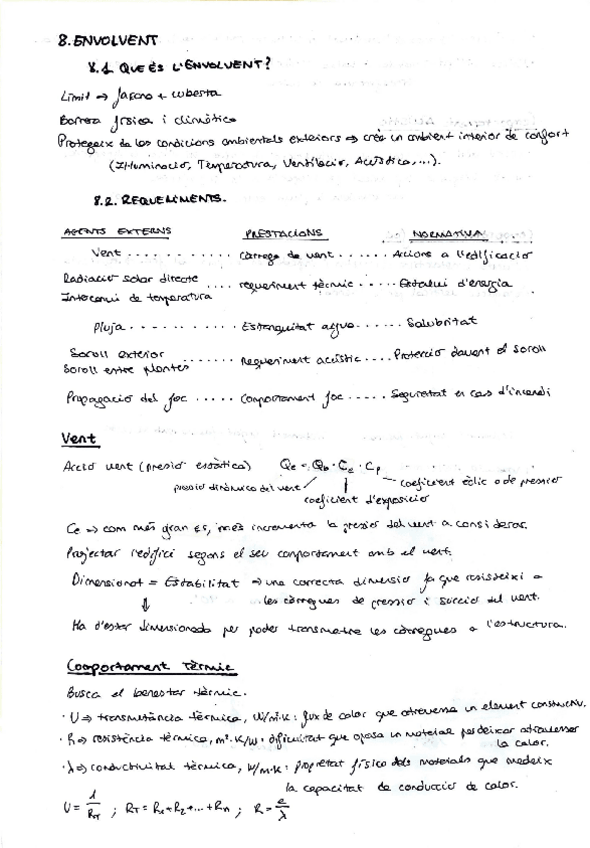 8. ENVOLVENT
8.1 QUE ÉS L'ENVOLVENT?
Límit ⇒ façana + coberta
Barrera física i climàtica
Protegeix de les condicions ambientals exteriors ⇒ crea un ambient interior de confort
(Il·luminació, Temperatura, Ventilació, Acústica, ...).
8.2. REQUERIMENTS.
AGENTS EXTERNS PRESTACIONS NORMATIVA
Vent . . . . . . . . . . càrrega de vent . . . . . . Accions a l'edificació
Radiació solar directe
Intercanvi de temperatura . . . . requeriment tèrmic . . . . . Estalvi d'energia
Pluja . . . . . . . . . . Estanquitat aigua . . . . . . Salubritat
Soroll exterior
Soroll entre plantes . . . . . . . Requeriment acústic . . . . Protecció davant el soroll
Propagació del foc . . . . . Comportament foc . . . . . Seguretat en cas d'incendi
Vent
Acció vent (pressió estàtica) Qe = Qb · Ce · Cp
pressió dinàmica del vent
coeficient d'exposició
coeficient eòlic o de pressió
Ce ⇒ com més gran és, més incrementa la pressió del vent a considerar.
Projectar l'edifici segons el seu comportament amb el vent.
Dimensionat = Estabilitat ⇒ una correcta dimensió fa que resisteixi a
les càrregues de pressió i succió del vent.
⇓
Ha d'estar dimensionada per poder transmetre les càrregues a l'estructura.
Comportament Tèrmic
Busca el benestar tèrmic.
· U ⇒ transmitància tèrmica, W/m²·K: flux de calor que atravessa un element constructiu.
· R ⇒ resistència tèrmica, m²·K/W: dificultat que oposa un material per deixar atravessar
la calor.
· λ ⇒ conductivitat tèrmica, W/m·K: propietat física dels materials que medeix
la capacitat de conducció de calor.
U = 1/RT ; RT = R1 + R2 + ... + Rn ; R = e/λ